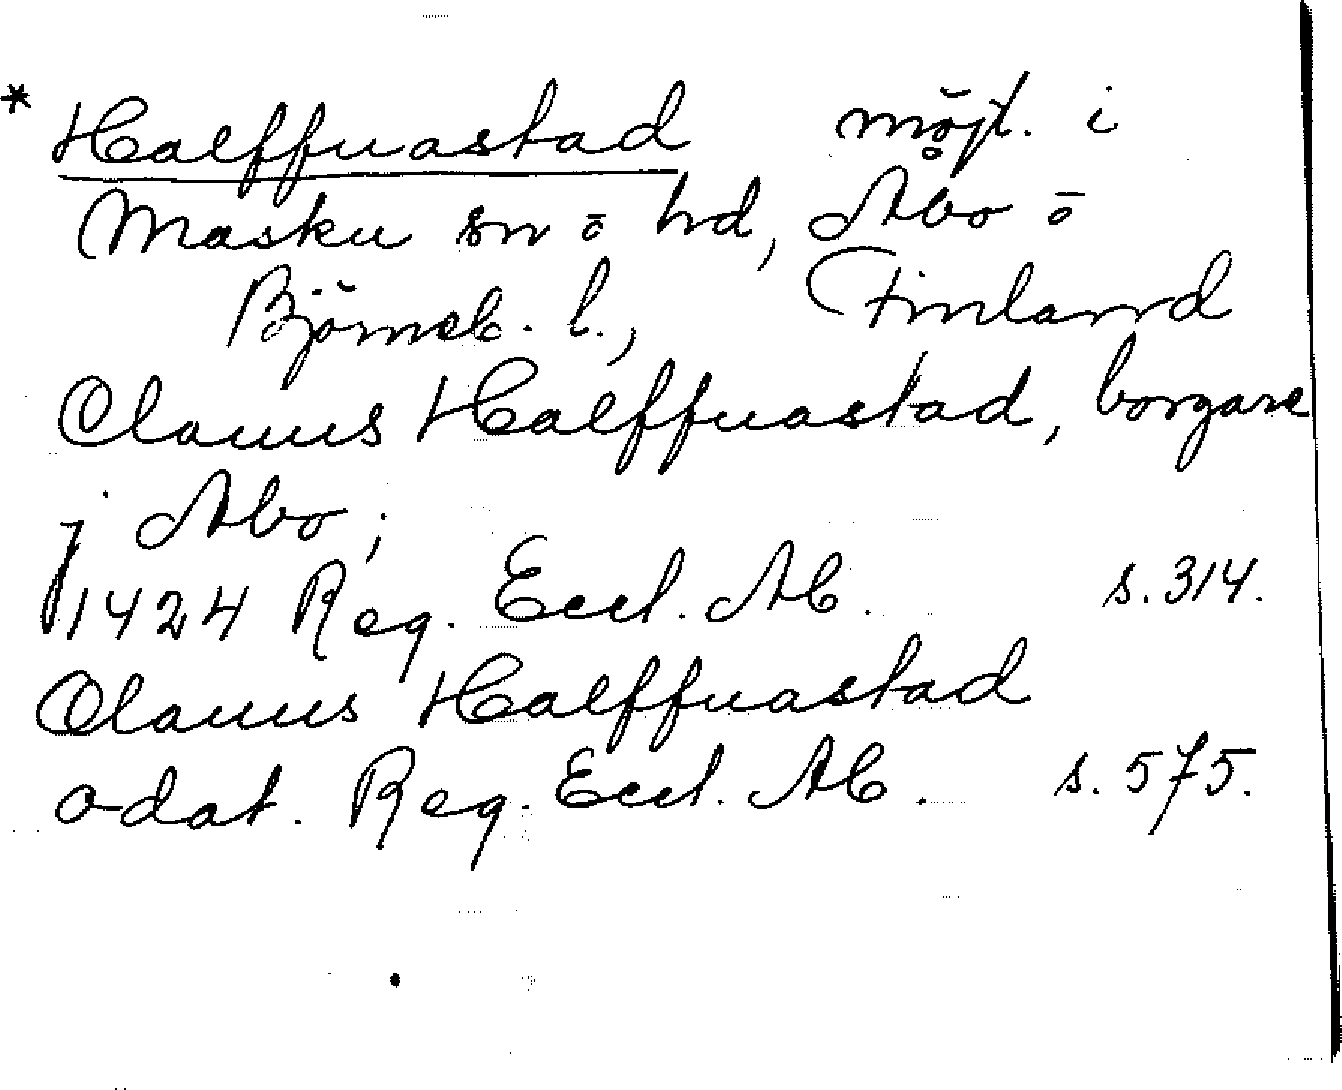 * Halffuastad möjl. i
Masku sn o hd, Åbo o
Björneb. l., Finland
Olauus Halffuastad, borgare
i Åbo;
1424 Reg. Eccl. Ab. s. 314.
Olauus Halffuastad
odat. Reg. Eccl. Ab. s. 575.